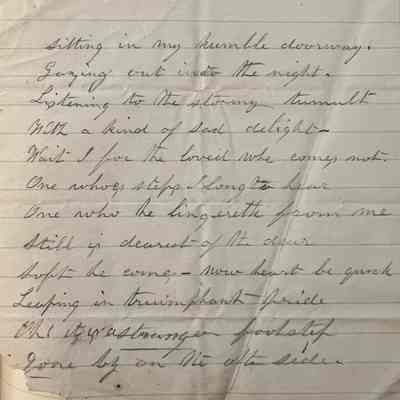 Sitting in my humble doorway.
Gazing out into the night.
Listening to the stormy tumult
With a kind of sad delight—
Wait I for the loved who comes not.
One whoes steps I long to hear
One who he lingereth from me
Still is dearest of the dear
Soft he comes — now heart be quick
Leaping in triumphant pride
Oh! it is a stranger footstep
Gone by on the other side.